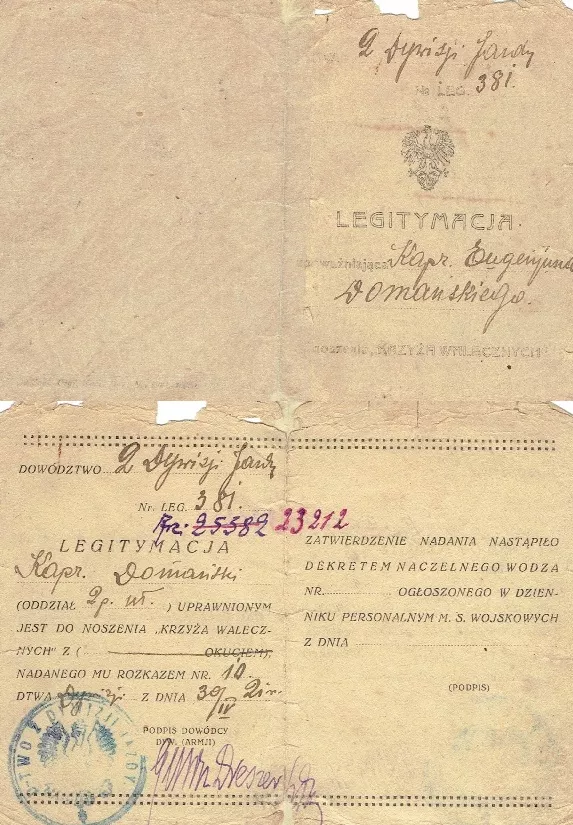 2 Dywizji Jazdy
№ LEG. 381.
LEGITYMACJA
upoważniająca Kapr. Eugenjusza
Domańskiego.
noszenia „KRZYŻA WALECZNYCH"
DOWÓDZTWO 2 Dywizji Jazdy
Nr. LEG. 381.
Nr: 25582 23212
LEGITYMACJA
Kapr. Domański
(ODDZIAŁ 2 p. uł. ) UPRAWNIONYM
JEST DO NOSZENIA „KRZYŻA WALECZ-
NYCH" Z ( OKUCIEM),
NADANEGO MU ROZKAZEM NR. 10.
DTWA Dywizji Z DNIA 30/IV 21 r.
PODPIS DOWÓDCY
DYW. (ARMJI)
DTWO 2 DYWIZJI JAZDY
ZATWIERDZENIE NADANIA NASTĄPIŁO
DEKRETEM NACZELNEGO WODZA
NR. OGŁOSZONEGO W DZIEN-
NIKU PERSONALNYM M. S. WOJSKOWYCH
Z DNIA
(PODPIS)